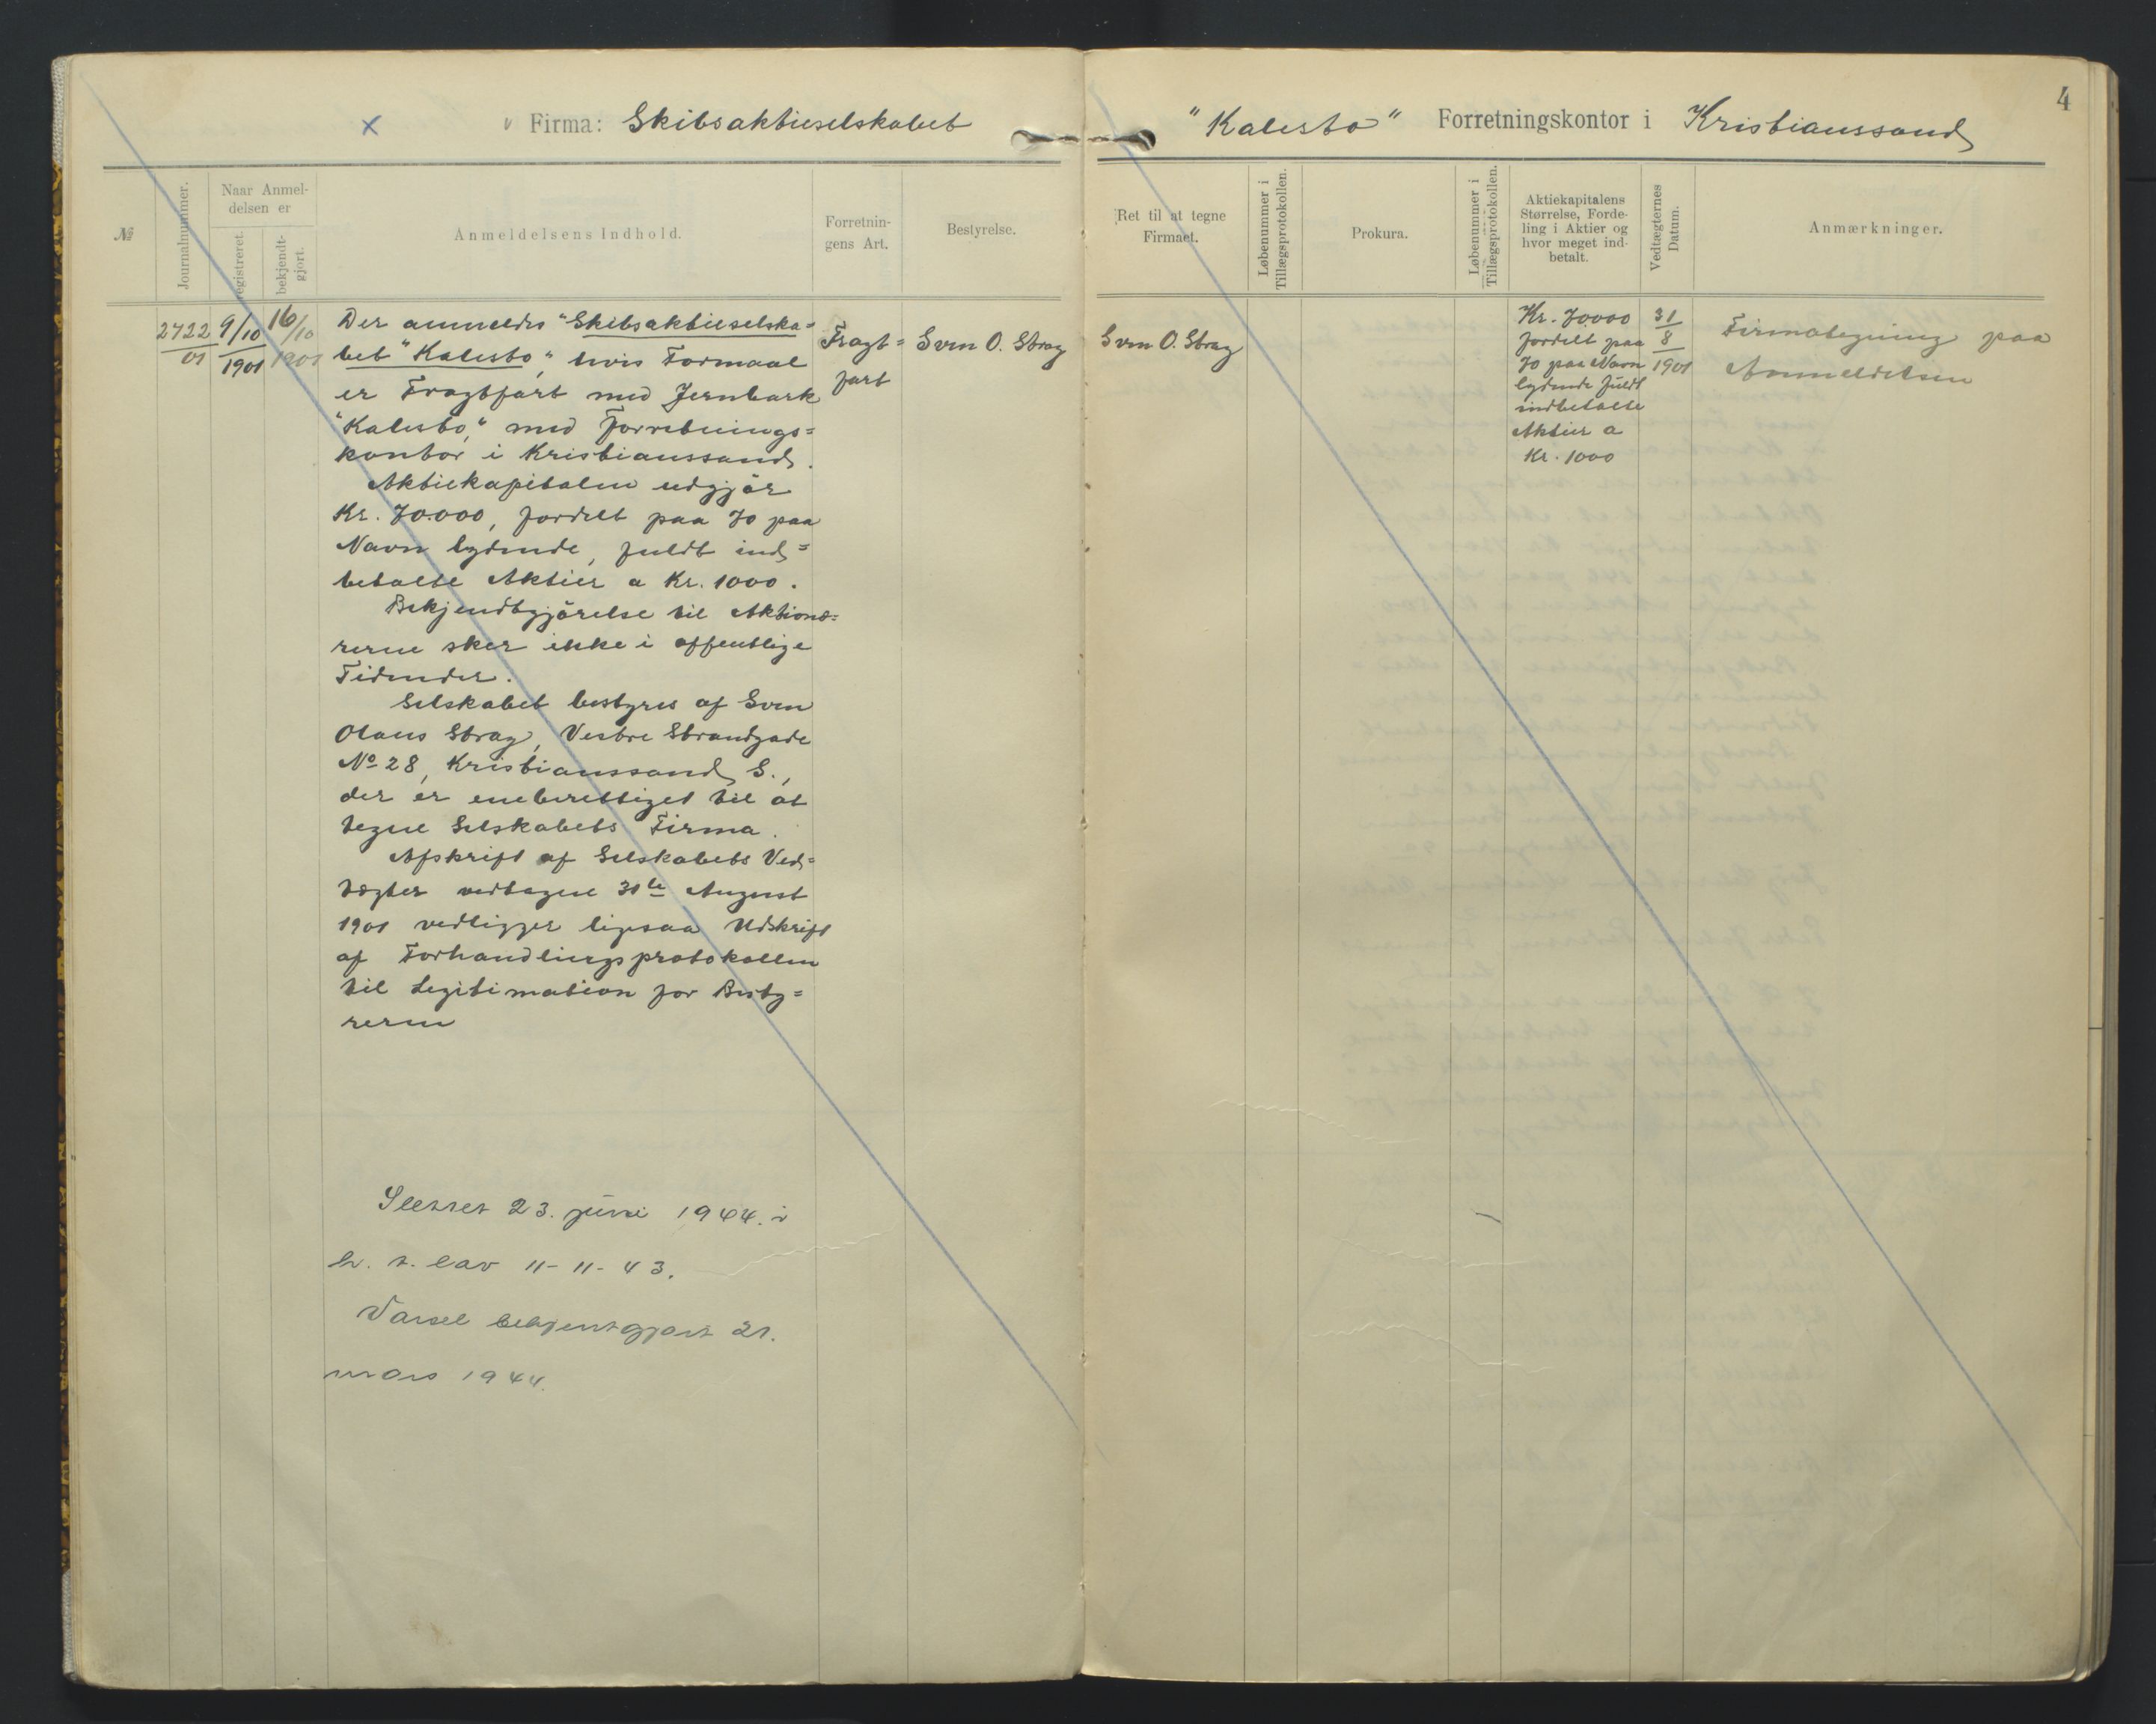 Firma: Skibsaktieselskabet
"Kalesto" Forretningskontor i Kristianssand
4
№
Journalnummer.
Naar Anmel-
delsen er
registreret.
bekjendt-
gjort.
Anmeldelsens Indhold.
Forretnin-
gens Art.
Bestyrelse.
Ret til at tegne
Firmaet.
Løbenummer i
Tillægsprotokollen.
Prokura.
Løbenummer i
Tillægsprotokollen.
Aktiekapitalens
Størrelse, Forde-
ling i Aktier og
hvor meget ind-
betalt.
Vedtægternes
Datum.
Anmærkninger.
2722/01
9/10 1901
16/10 1901
Der anmeldes "Skibsaktieselska=
bet "Kalesto", hvis Formaal
er Fragtfart med Jernbark
"Kalesto," med Forretnings=
kontor i Kristianssand.
Aktiekapitalen udgjör
Kr. 70.000, fordelt paa 70 paa
Navn lydende, fuldt ind=
betalte Aktier a Kr. 1000.
Bekjendtgjörelse til Aktionæ=
rerne sker ikke i offentlige
Tidender.
Selskabet bestyres af Sven
Olaus Stray, Vestre Strandgade
No 28, Kristianssand S.,
der er eneberettiget til at
tegne Selskabets Firma.
Afskrift af Selskabets Ved=
tægter vedtagne 31te August
1901 vedligger ligesaa Udskrift
af Forhandlingsprotokollen
til Legitimation for Besty=
reren
Fragt=
fart
Sven O. Stray
Sven O. Stray
Kr. 70000
fordelt paa
70 paa Navn
lydende fuldt
indbetalte
Aktier a
Kr. 1000
31/8 1901
Firmategning paa
Anmeldelsen
Slettet 23. juni 1944. i
h. t. lov 11-11-43.
Varsel bekjentgjort 21.
mars 1944.